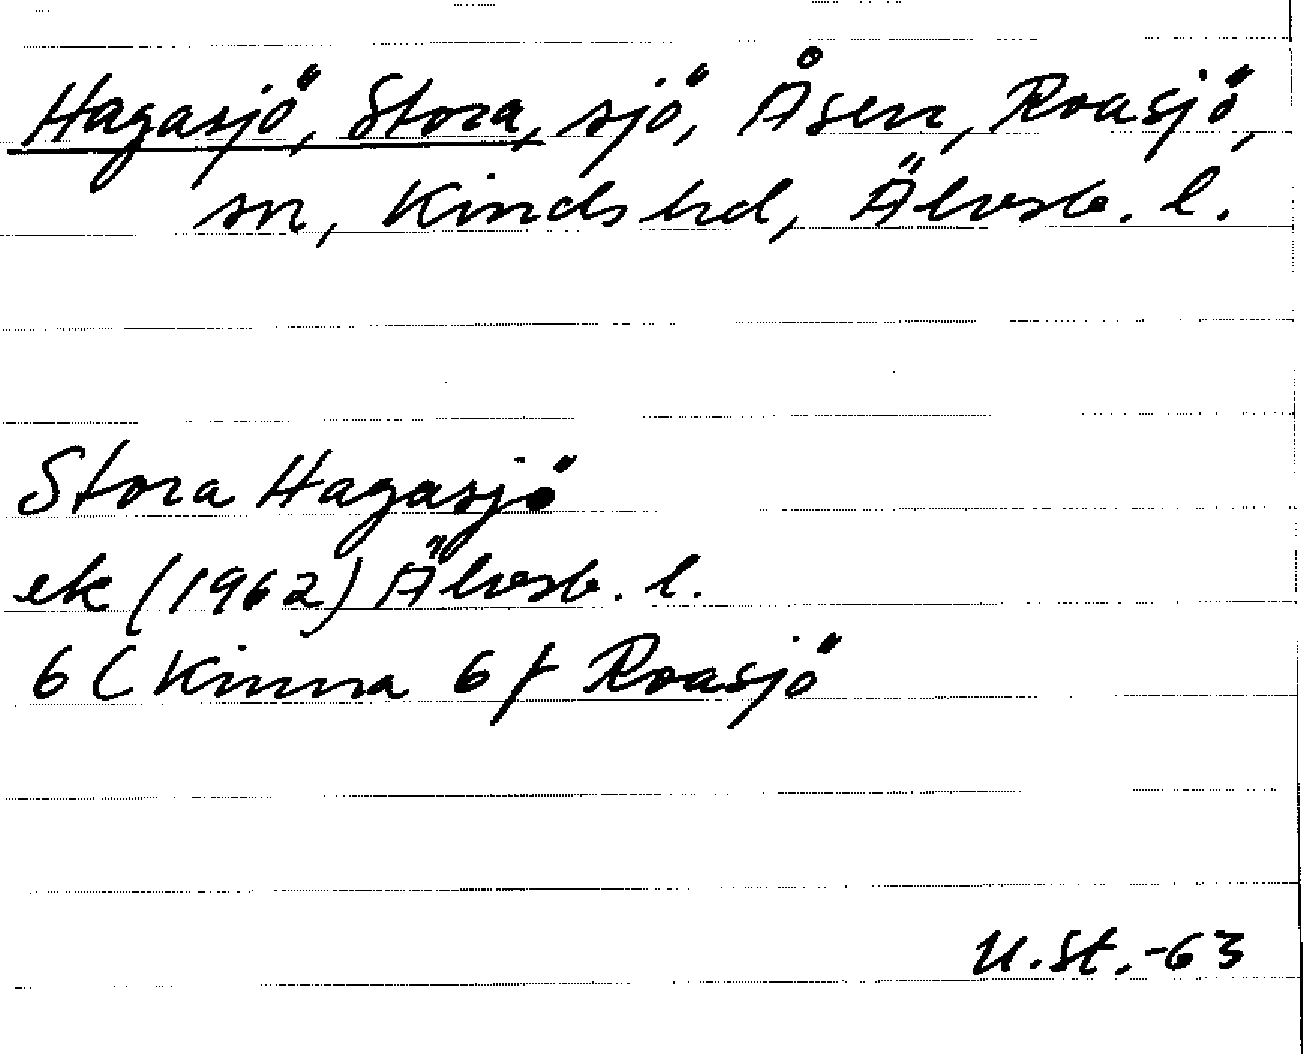 Hagasjö, Stora, sjö, Åsen, Roasjö,
sn, Kinds hd, Älvsb. l.
Stora Hagasjö
ek (1962) Älvsb. l.
6 ( Kinna 6 f Roasjö
U.St.-63